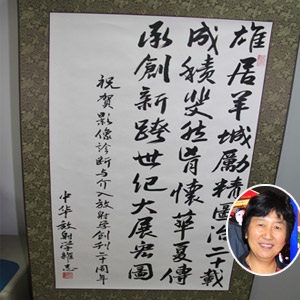 雄居羊城勵精圖治二十載
成績斐然胷懷華夏傳
承創新跨世纪大展宏圖
祝賀影像诊断与介入放射学創刊二十周年
中华放射学雜志